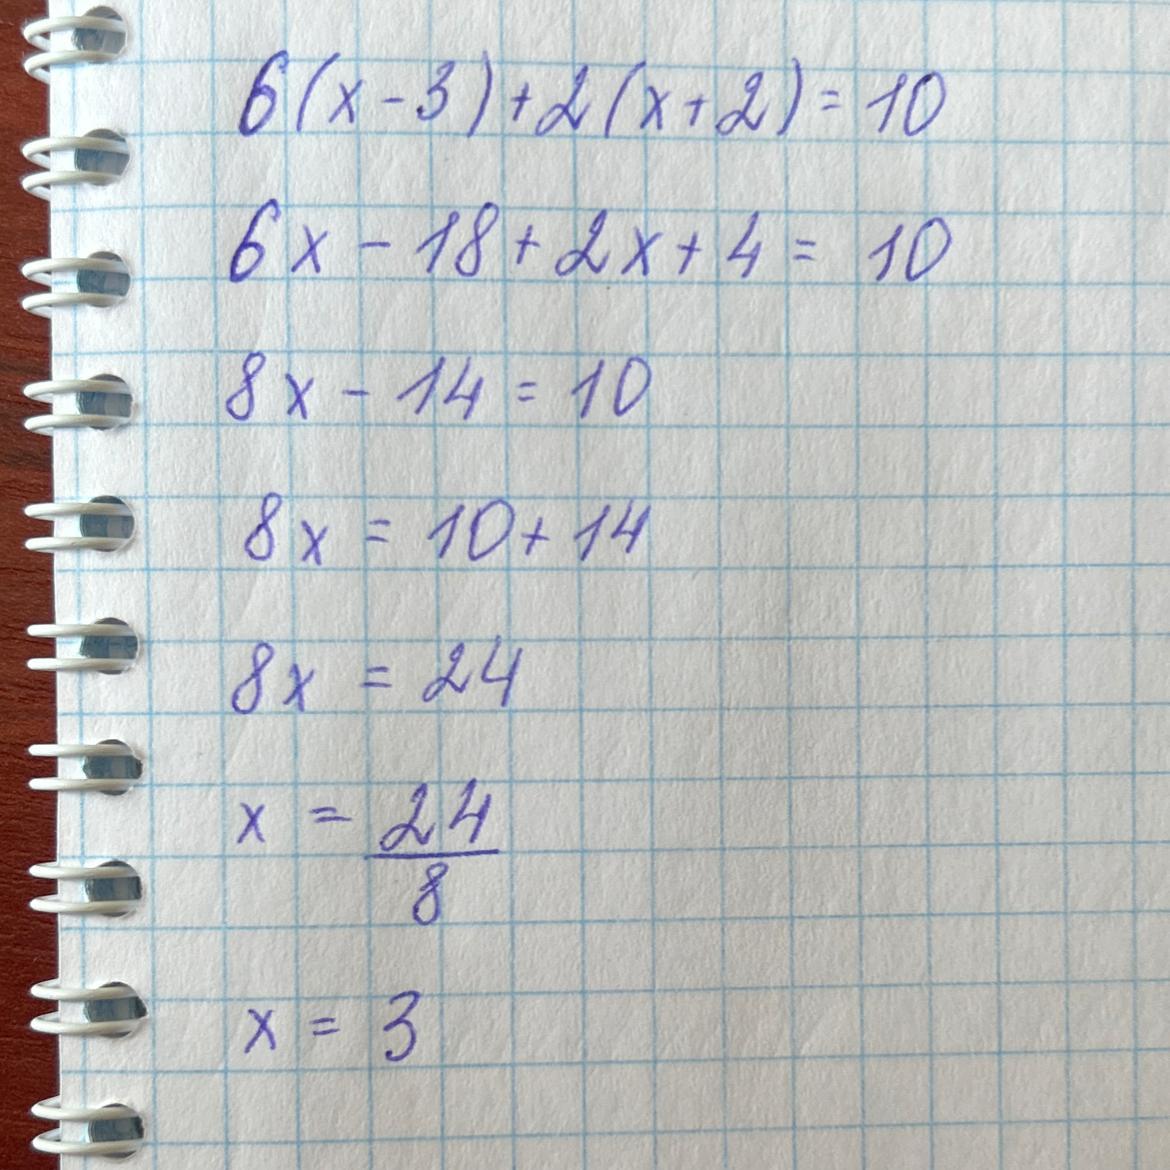 6(x-3)+2(x+2)=10
6x-18+2x+4=10
8x-14=10
8x=10+14
8x=24
x=24/8
x=3